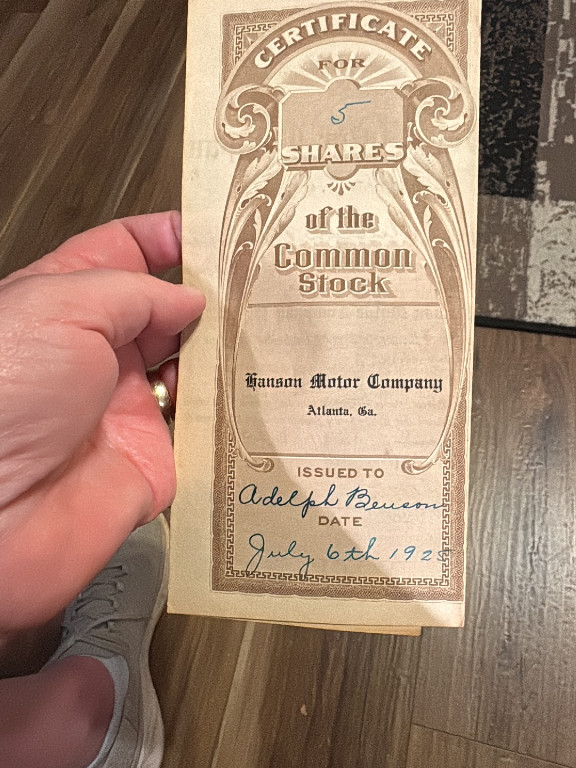 CERTIFICATE
FOR
5
SHARES
of the
Common
Stock
Hanson Motor Company
Atlanta, Ga.
ISSUED TO
Adelph Benson
DATE
July 6th 1925